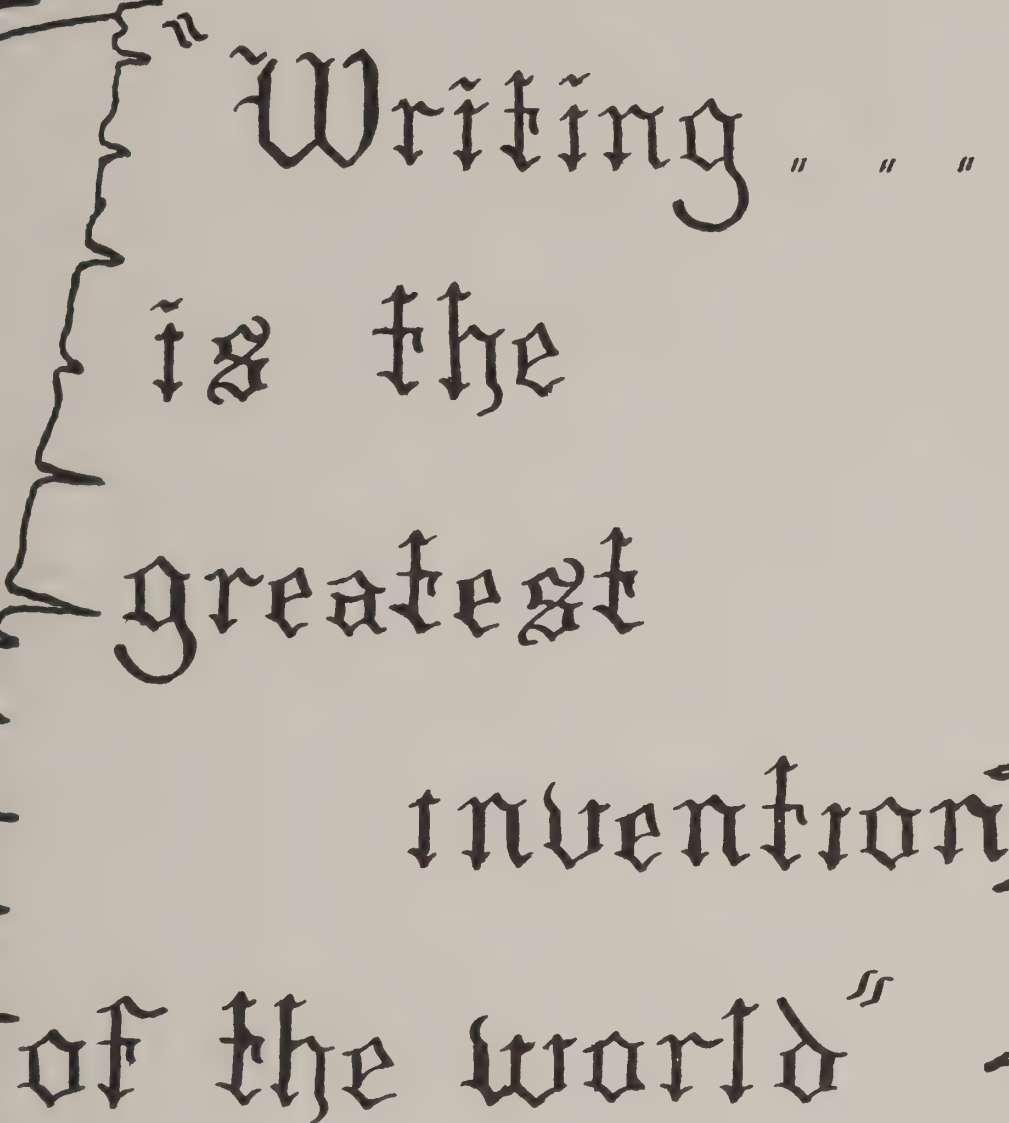 "Writing . . .
is the
greatest
invention
of the world"